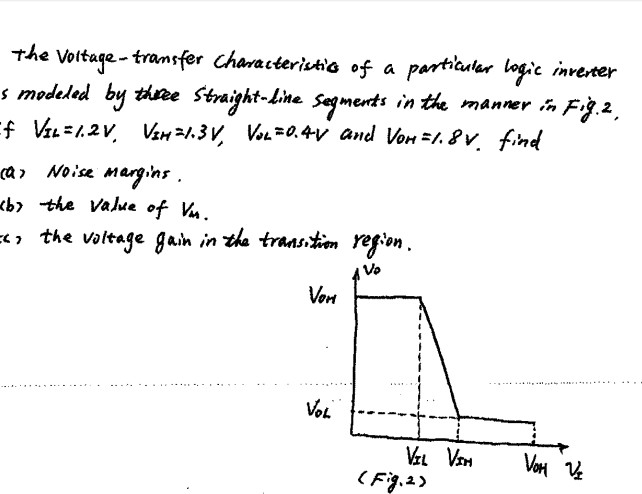 The Voltage-transfer Characteristics of a particular logic inverter
s modeled by three straight-line segments in the manner in Fig.2,
f VIL=1.2V, VIH=1.3V, VOL=0.4V and VOH=1.8V. find
(a) Noise margins.
(b) the value of VM.
(c) the voltage gain in the transition region.
VO
VOH
VOL
VIL VIH VOH VI
(Fig.2)